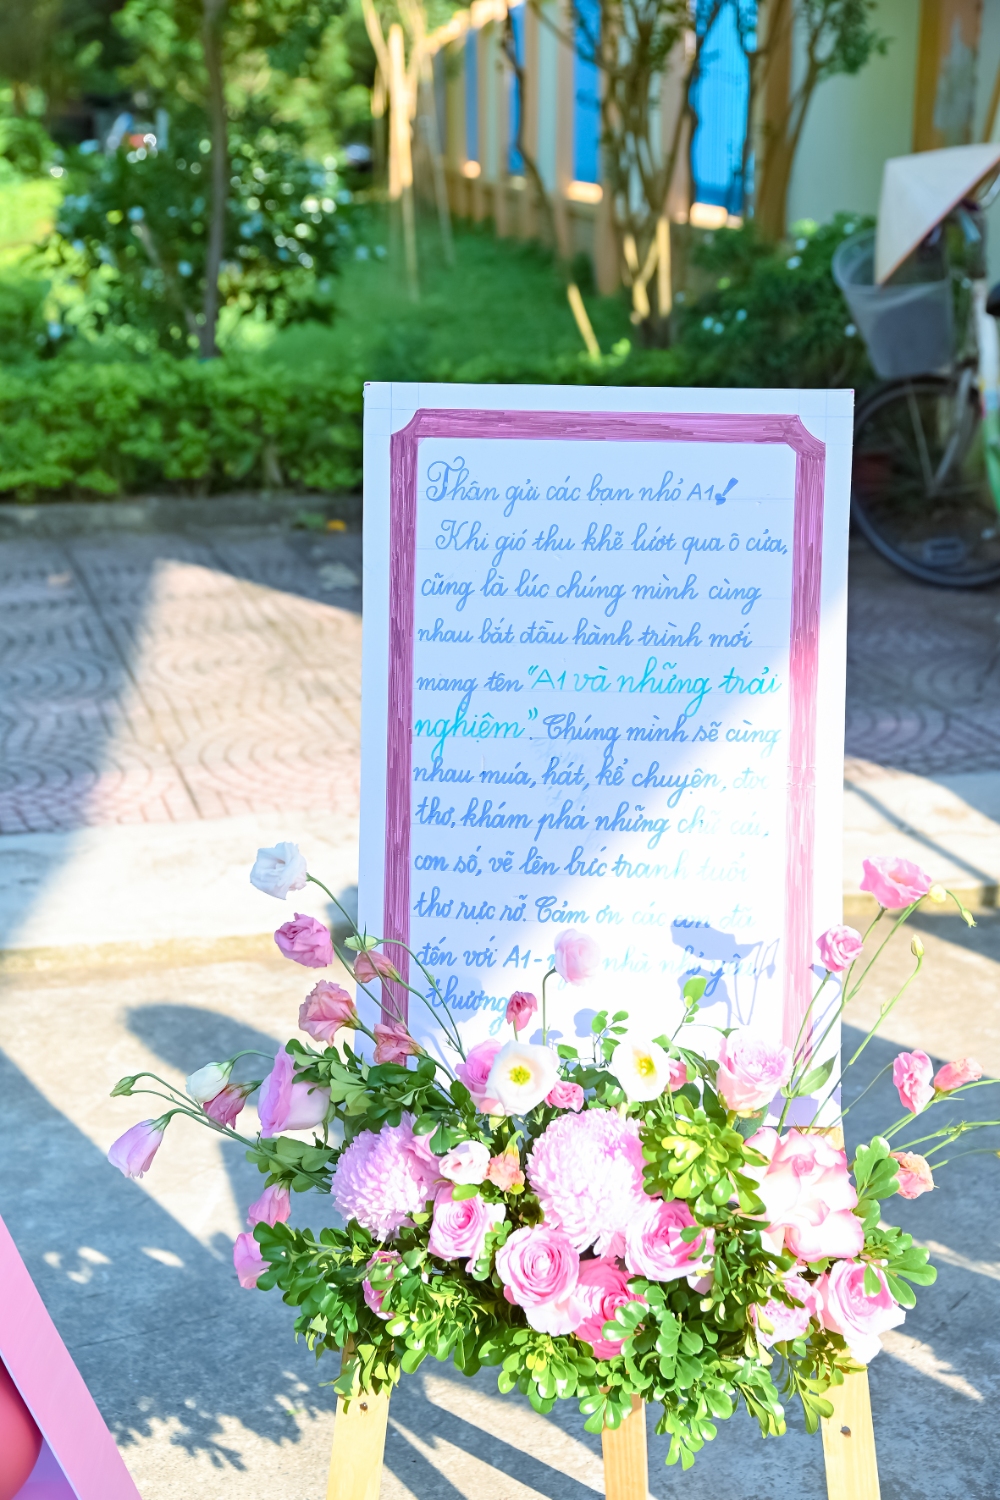 Thân gửi các bạn nhỏ A1!
Khi gió thu khẽ lướt qua ô cửa,
cũng là lúc chúng mình cùng
nhau bắt đầu hành trình mới
mang tên "A1 và những trải
nghiệm". Chúng mình sẽ cùng
nhau múa, hát, kể chuyện, đọc
thơ, khám phá những chữ cái,
con số, vẽ lên bức tranh tuổi
thơ rực rỡ. Cảm ơn các con đã
đến với A1- nhà nhỏ yêu
thương